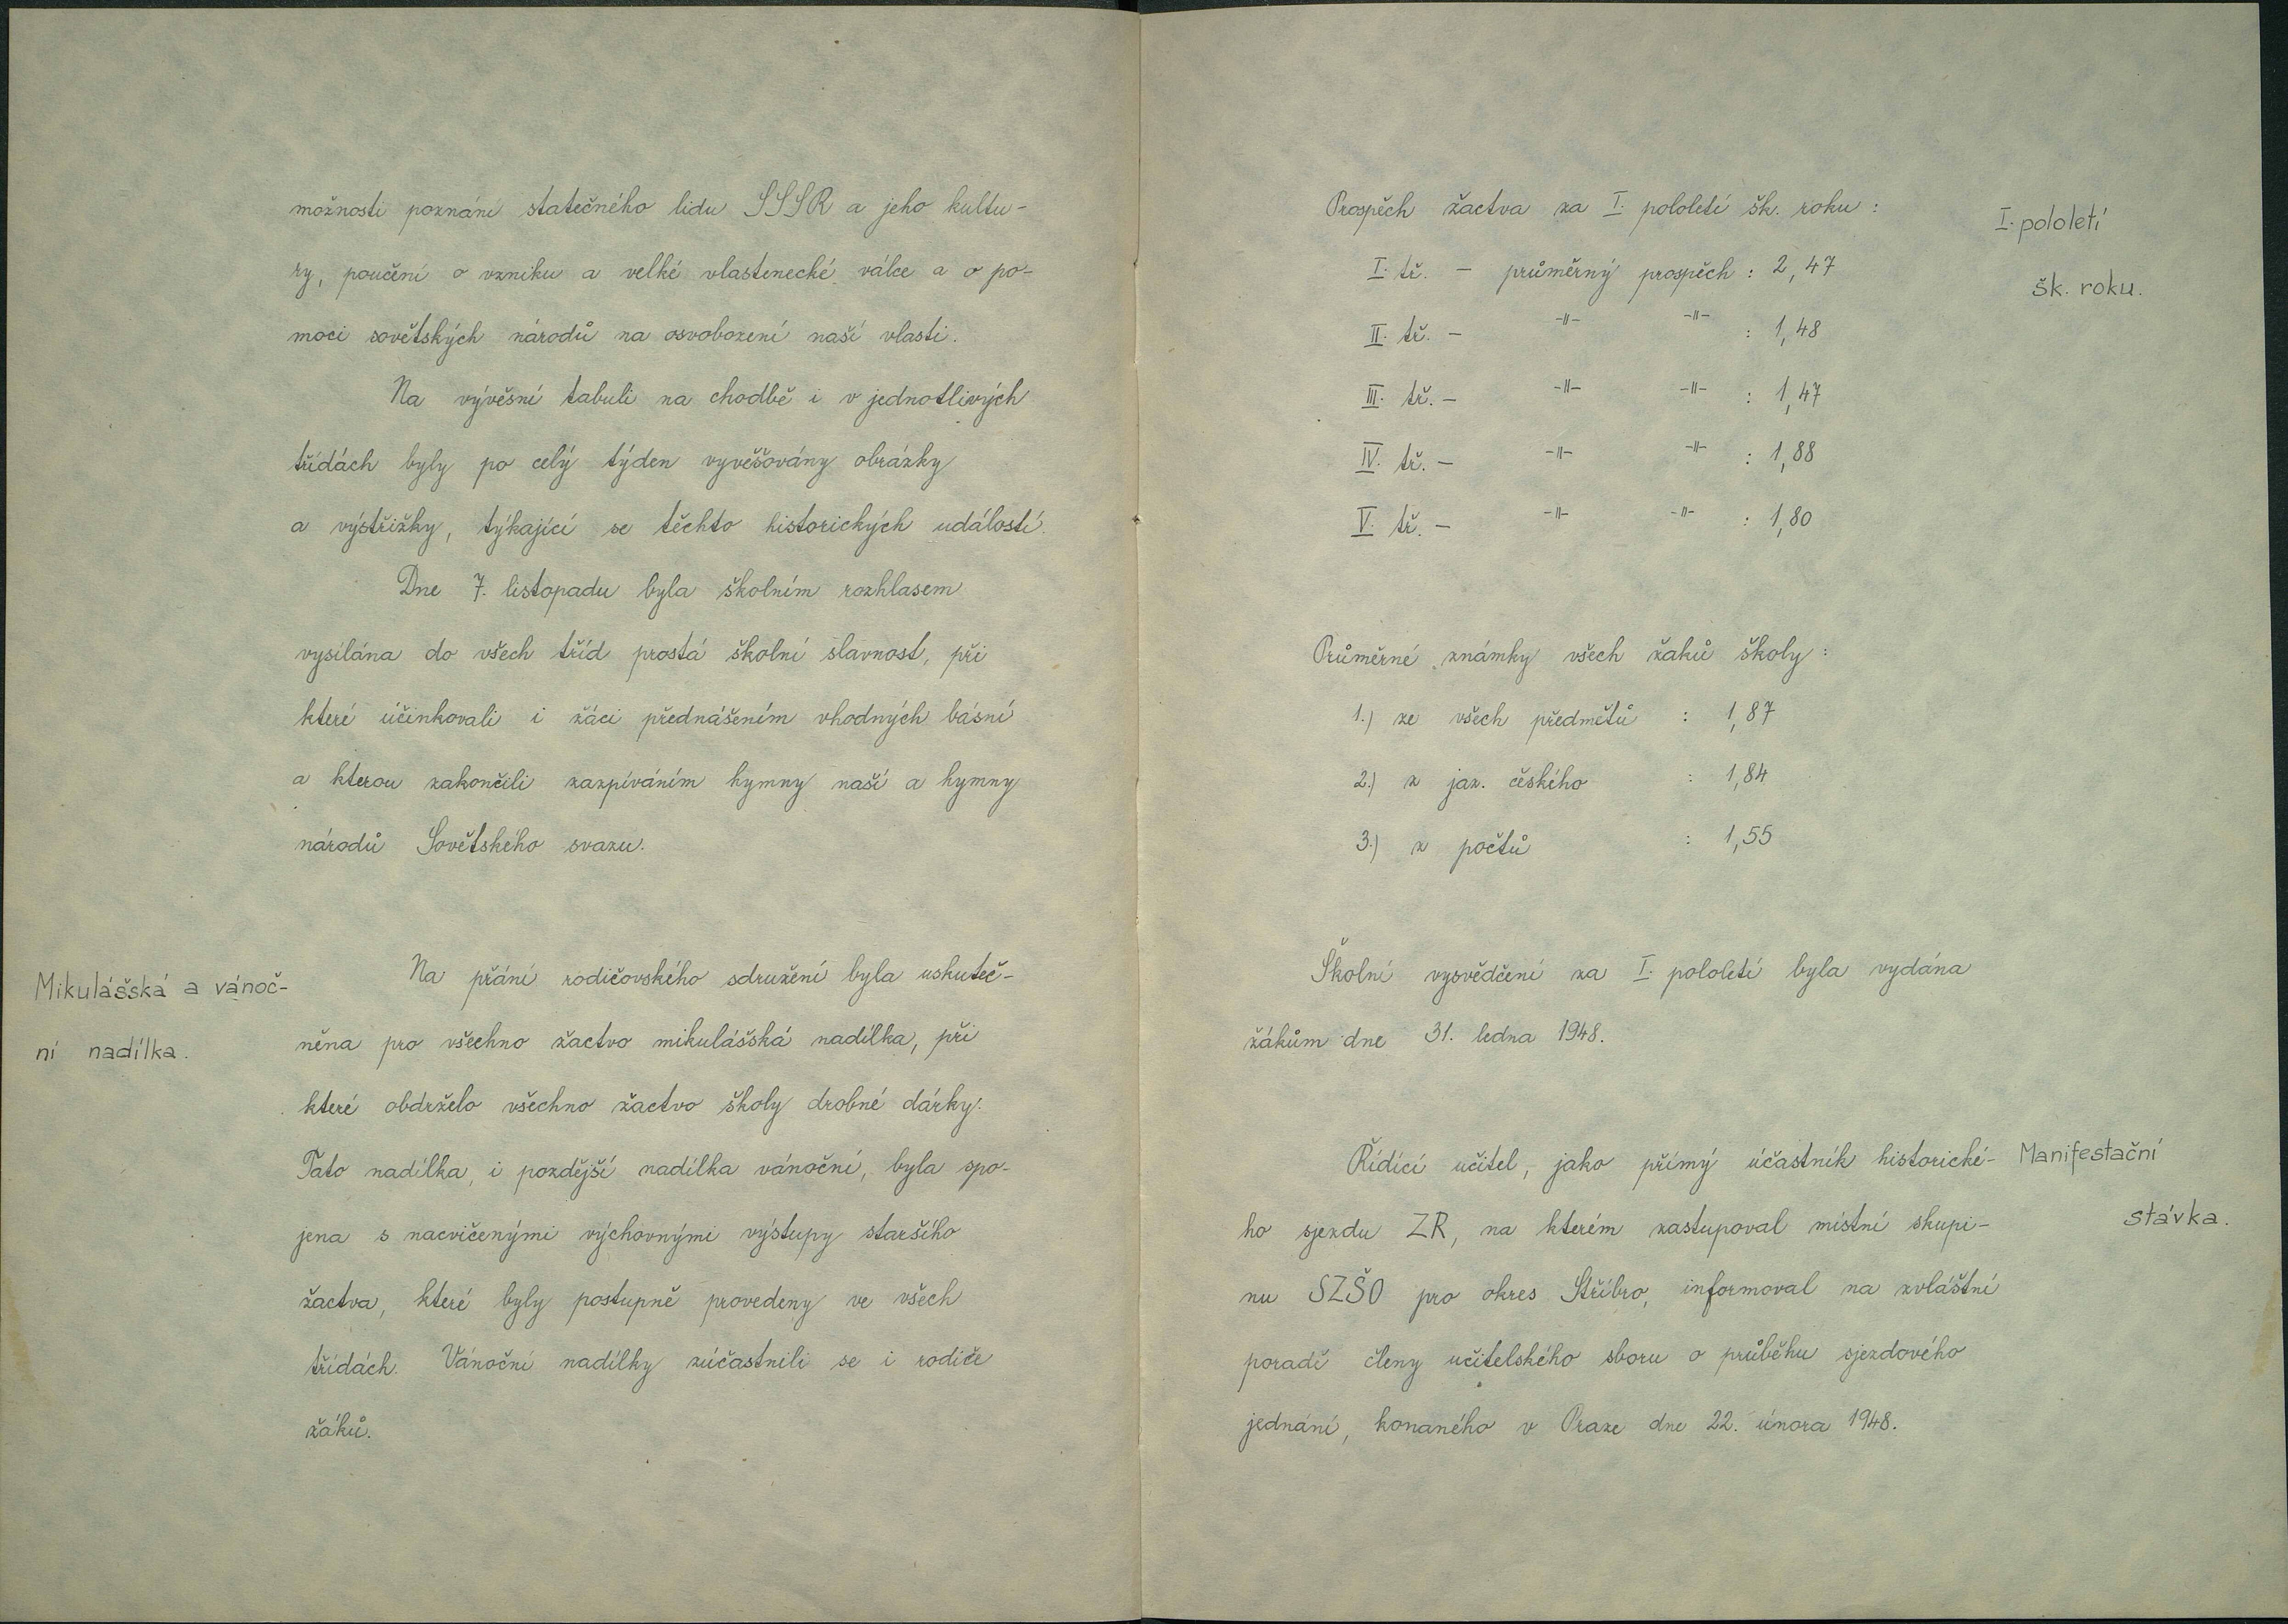 možnosti poznání statečného lidu SSSR a jeho kultu-
ry, poučení o vzniku a velké vlastenecké válce a o po-
moci sovětských národů na osvobození naší vlasti.
Na vývěsní tabuli na chodbě i v jednotlivých
třídách byly po celý týden vyvěšovány obrázky
a výstřižky, týkající se těchto historických událostí.
Dne 7. listopadu byla školním rozhlasem
vysílána do všech tříd prostá školní slavnost, při
které účinkovali i žáci přednášením vhodných básní
a kterou zakončili zazpíváním hymny naší a hymny
národů Sovětského svazu.
Mikulášská a vánoč-
ní nadílka.
Na přání rodičovského sdružení byla uskuteč-
něna pro všechno žactvo mikulášská nadílka, při
které obdrželo všechno žactvo školy drobné dárky.
Tato nadílka, i pozdější nadílka vánoční, byla spo-
jena s nacvičenými výchovnými výstupy staršího
žactva, které byly postupně provedeny ve všech
třídách. Vánoční nadílky zúčastnili se i rodiče
žáků.
Prospěch žactva za I. pololetí šk. roku :
I. pololetí
šk. roku.
I. tř. – průměrný prospěch : 2,47
II. tř. – -"- -"- : 1,48
III. tř. – -"- -"- : 1,47
IV. tř. – -"- -"- : 1,88
V. tř. – -"- -"- : 1,80
Průměrné známky všech žáků školy :
1.) ze všech předmětů : 1,87
2.) z jaz. českého : 1,84
3.) z počtů : 1,55
Školní vysvědčení za I. pololetí byla vydána
žákům dne 31. ledna 1948.
Manifestační
stávka.
Řídící učitel, jako přímý účastník historické-
ho sjezdu ZR, na kterém zastupoval místní skupi-
nu SZŠO pro okres Stříbro, informoval na zvláštní
poradě členy učitelského sboru o průběhu sjezdového
jednání, konaného v Praze dne 22. února 1948.